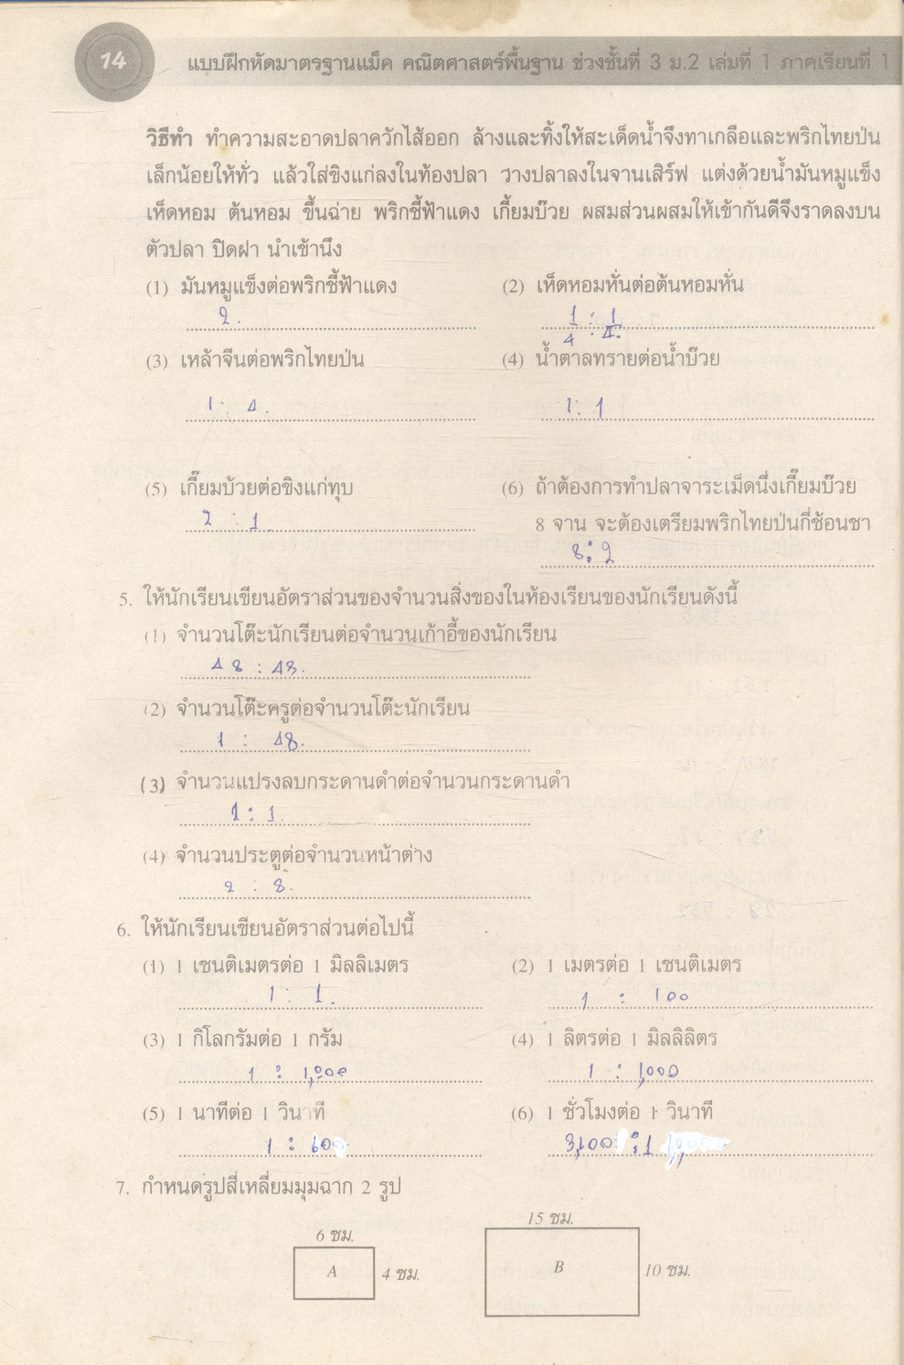 14
แบบฝึกหัดมาตรฐานแม็ค คณิตศาสตร์พื้นฐาน ช่วงชั้นที่ 3 ม.2 เล่มที่ 1 ภาคเรียนที่ 1
วิธีทำ ทำความสะอาดปลาควักไส้ออก ล้างและทิ้งให้สะเด็ดน้ำจึงทาเกลือและพริกไทยป่น
เล็กน้อยให้ทั่ว แล้วใส่ขิงแก่ลงในท้องปลา วางปลาลงในจานเสิร์ฟ แต่งด้วยน้ำมันหมูแข็ง
เห็ดหอม ต้นหอม ขึ้นฉ่าย พริกชี้ฟ้าแดง เกี้ยมบ๊วย ผสมส่วนผสมให้เข้ากันดีจึงราดลงบน
ตัวปลา ปิดฝา นำเข้านึ่ง
(1) มันหมูแข็งต่อพริกชี้ฟ้าแดง (2) เห็ดหอมหั่นต่อต้นหอมหั่น
2. 1/4 : 1/4.
(3) เหล้าจีนต่อพริกไทยป่น (4) น้ำตาลทรายต่อน้ำบ๊วย
1 : 4. 1 : 1
(5) เกี๊ยมบ้วยต่อขิงแก่ทุบ (6) ถ้าต้องการทำปลาจาระเม็ดนึ่งเกี๊ยมบ๊วย
8 จาน จะต้องเตรียมพริกไทยป่นกี่ช้อนชา
2 : 1. 8 : 2
5. ให้นักเรียนเขียนอัตราส่วนของจำนวนสิ่งของในห้องเรียนของนักเรียนดังนี้
(1) จำนวนโต๊ะนักเรียนต่อจำนวนเก้าอี้ของนักเรียน
48 : 48.
(2) จำนวนโต๊ะครูต่อจำนวนโต๊ะนักเรียน
1 : 48.
(3) จำนวนแปรงลบกระดานดำต่อจำนวนกระดานดำ
1 : 1.
(4) จำนวนประตูต่อจำนวนหน้าต่าง
2 : 8.
6. ให้นักเรียนเขียนอัตราส่วนต่อไปนี้
(1) 1 เซนติเมตรต่อ 1 มิลลิเมตร (2) 1 เมตรต่อ 1 เซนติเมตร
1 : 1. 1 : 100
(3) 1 กิโลกรัมต่อ 1 กรัม (4) 1 ลิตรต่อ 1 มิลลิลิตร
1 : 1,000 1 : 1,000
(5) 1 นาทีต่อ 1 วินาที (6) 1 ชั่วโมงต่อ 1 วินาที
1 : 60 : 1
7. กำหนดรูปสี่เหลี่ยมมุมฉาก 2 รูป
6 ซม. 15 ซม.
A 4 ซม. B 10 ซม.